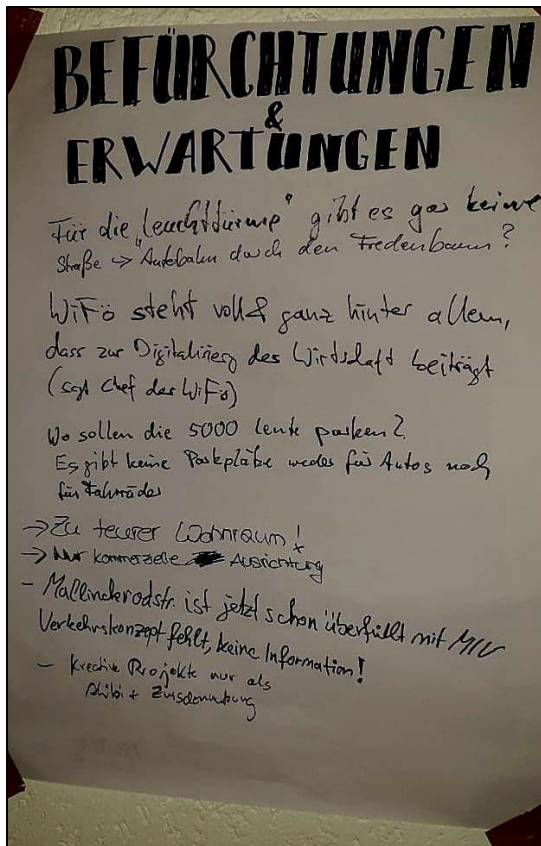 BEFÜRCHTUNGEN
&
ERWARTUNGEN
Für die "Leuchttürme" gibt es gar keine
Straße → Autobahn durch den Fredenbaum?
WiFö steht voll & ganz hinter allem,
dass zur Digitalisierg des Wirtschaft beiträgt
(sagt Chef der WiFö)
Wo sollen die 5000 Leute parken?
Es gibt keine Parkplätze weder für Autos noch
für Fahrräder
→ Zu teurer Wohnraum!
→ Nur kommerzielle Ausrichtung
- Mallinckrodstr. ist jetzt schon überfüllt mit MIV
Verkehrskonzept fehlt, keine Information!
- Kreative Projekte nur als
Alibi + Zwischennutzung